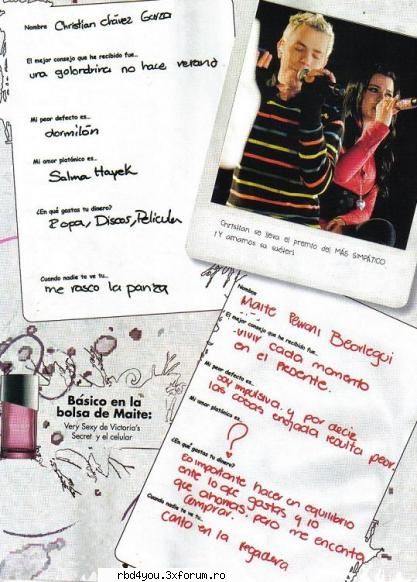 Nombre Christian Chávez Garza
El mejor consejo que he recibido fue...
una golondrina no hace verano
Mi peor defecto es...
dormilón
Mi amor platónico es...
Salma Hayek
¿En qué gastas tu dinero?
Ropa, Discos, Película
Cuando nadie te ve tu...
me rasco la panza
Christian se lleva el premio del MÁS SIMPÁTICO
¡Y amamos su suéter!
Nombre
Maite Perroni Beorlegui
El mejor consejo que he recibido fue...
vivir cada momento
en el presente.
Mi peor defecto es...
soy impulsiva y por decir
las cosas enojada resulta peor
Mi amor platónico es...
?
¿En qué gastas tu dinero?
es importante hacer un equilibrio
entre lo que gastas y lo
que ahorras, pero me encanta
comprar.
Cuando nadie te ve tu...
canto en la regadera
Básico en la
bolsa de Maite:
Very Sexy de Victoria's
Secret y el celular
rbd4you.3xforum.ro